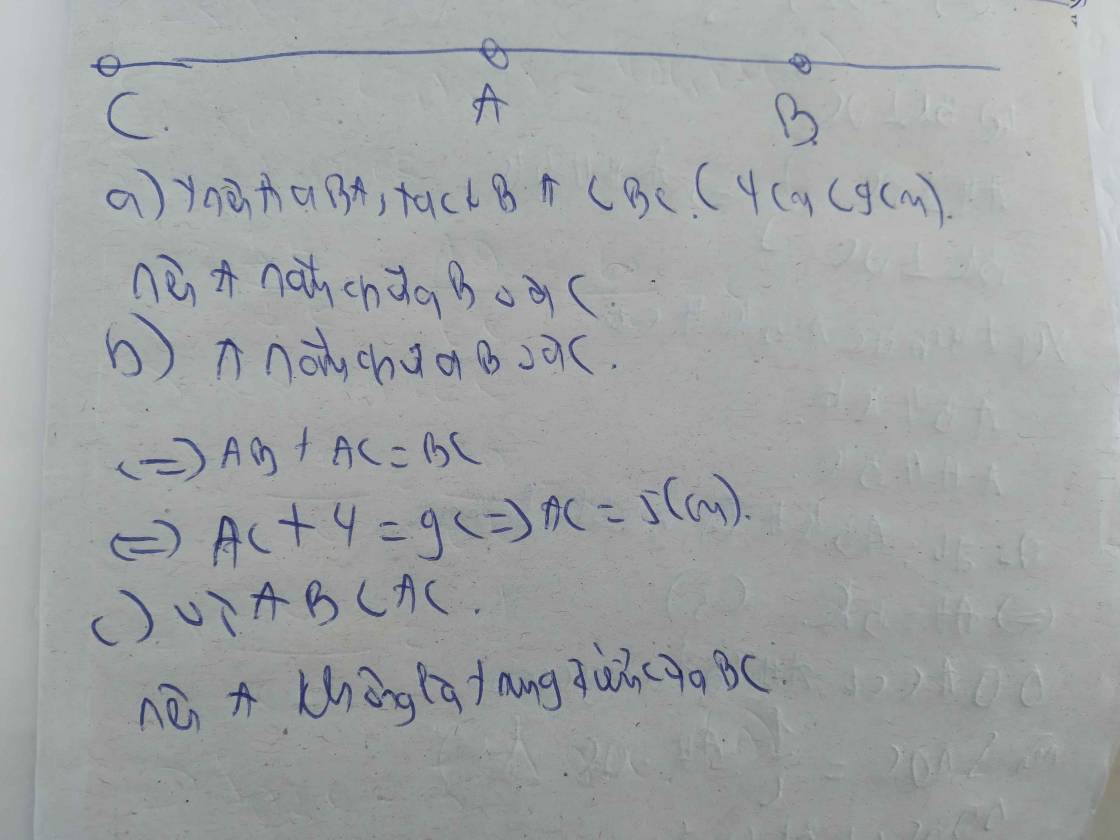 C A B
a) Trên tia BA, ta có BA < BC. (4cm < 9cm).
nên A nằm giữa B và C
b) A nằm giữa B và C.
<=> AB + AC = BC
<=> AC + 4 = 9 <=> AC = 5(cm).
c) vì AB < AC.
nên A không là trung điểm của BC.